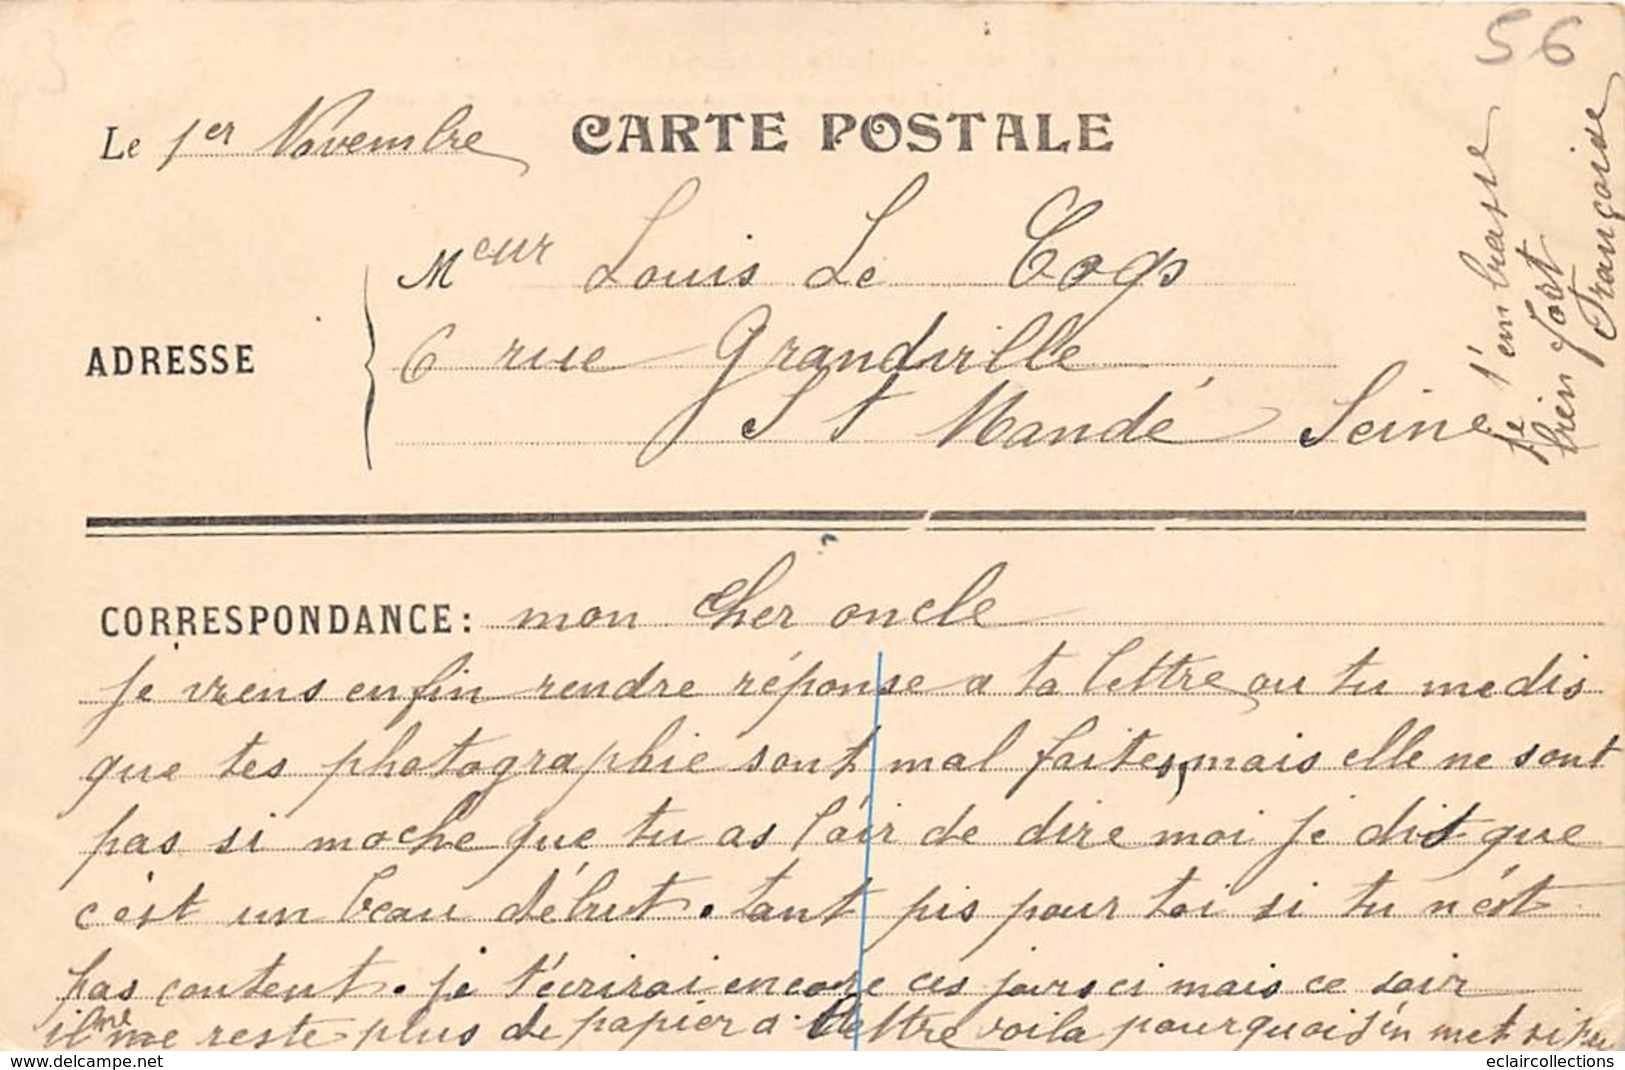 56
Le 1er Novembre
CARTE POSTALE
Meur Louis Le Cogs
ADRESSE
6 rue Grandville
St Mandé Seine
je t'embrasse
bien fort
Françoise
CORRESPONDANCE : mon cher oncle
je viens enfin rendre réponse a ta lettre ou tu me dis
que tes photographie sont mal faites, mais elle ne sont
pas si moche que tu as l'air de dire moi je dis que
c'est un beau début. tant pis pour toi si tu n'est
pas content. je t'écrirai encore ces jours ci mais ce soir
il me reste plus de papier a lettre voila pourquoi j'en met si peu
www.delcampe.net
eclaircollections